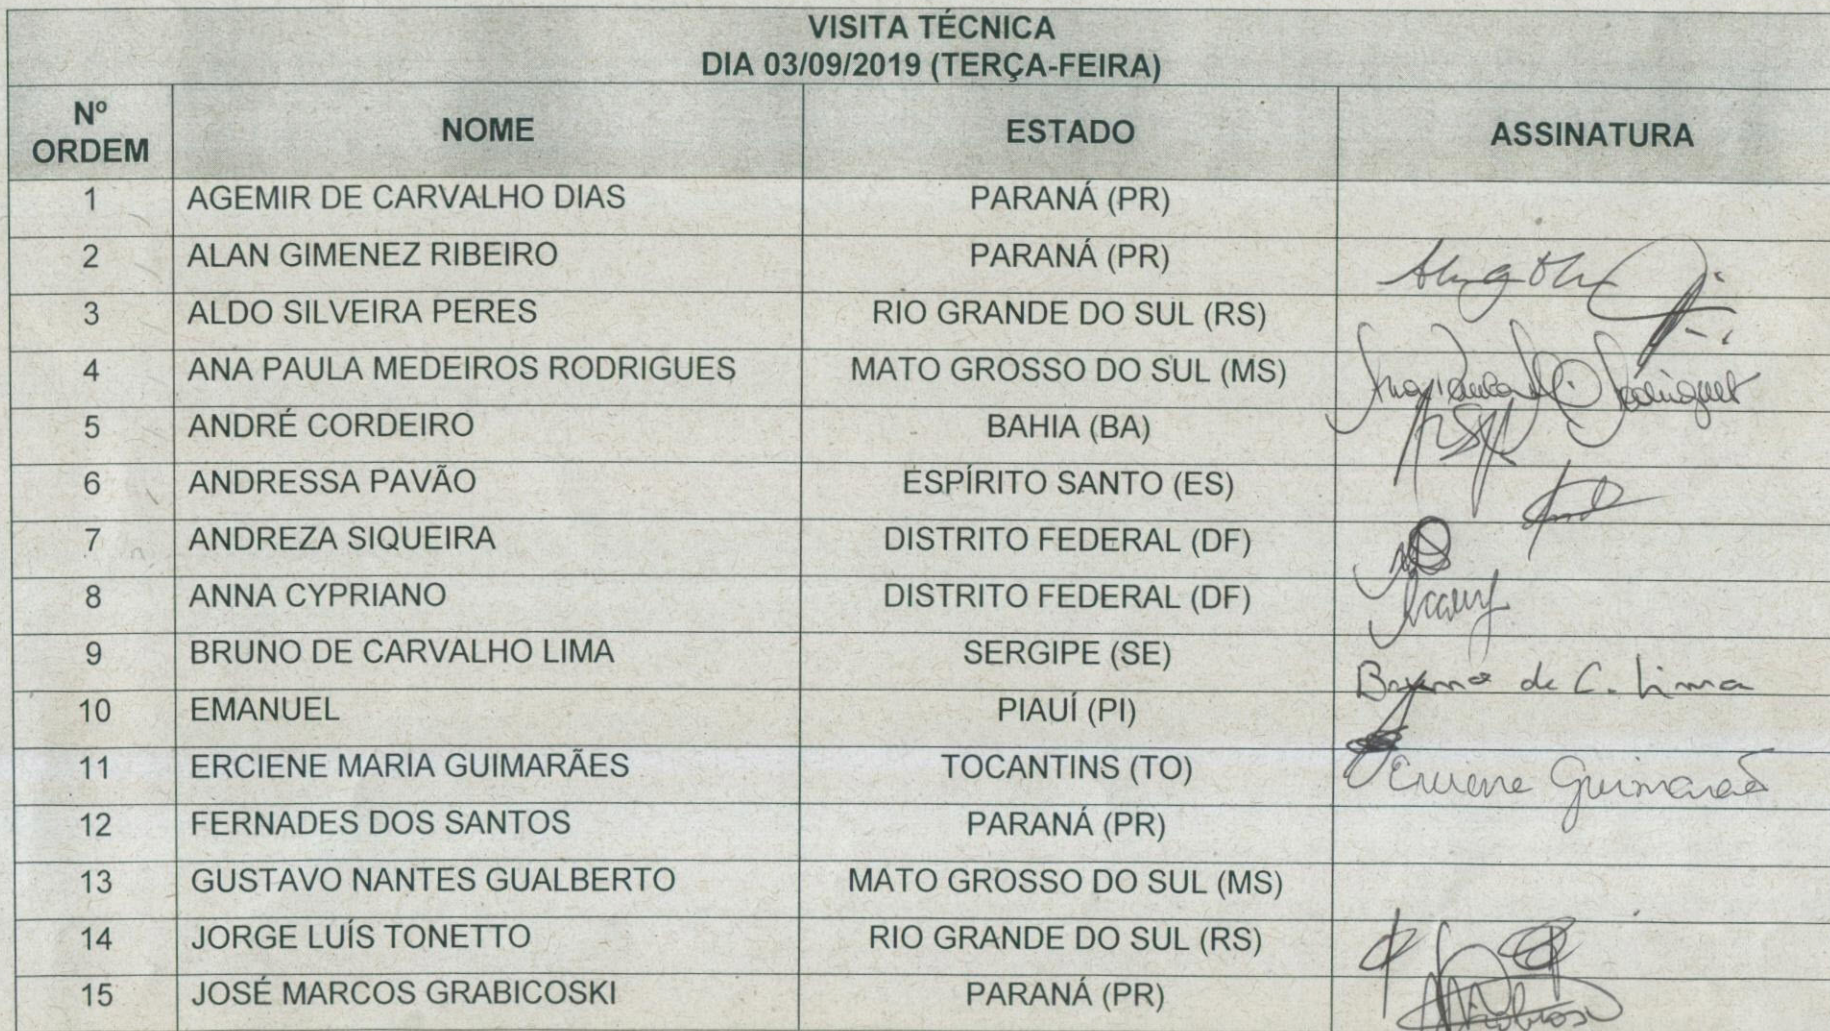 VISITA TÉCNICA
DIA 03/09/2019 (TERÇA-FEIRA)
Nº ORDEM NOME ESTADO ASSINATURA
1 AGEMIR DE CARVALHO DIAS PARANÁ (PR)
2 ALAN GIMENEZ RIBEIRO PARANÁ (PR)
3 ALDO SILVEIRA PERES RIO GRANDE DO SUL (RS)
4 ANA PAULA MEDEIROS RODRIGUES MATO GROSSO DO SUL (MS)
5 ANDRÉ CORDEIRO BAHIA (BA)
6 ANDRESSA PAVÃO ESPÍRITO SANTO (ES)
7 ANDREZA SIQUEIRA DISTRITO FEDERAL (DF)
8 ANNA CYPRIANO DISTRITO FEDERAL (DF)
9 BRUNO DE CARVALHO LIMA SERGIPE (SE) Bruno de C. Lima
10 EMANUEL PIAUÍ (PI)
11 ERCIENE MARIA GUIMARÃES TOCANTINS (TO) Erciene Guimarães
12 FERNADES DOS SANTOS PARANÁ (PR)
13 GUSTAVO NANTES GUALBERTO MATO GROSSO DO SUL (MS)
14 JORGE LUÍS TONETTO RIO GRANDE DO SUL (RS)
15 JOSÉ MARCOS GRABICOSKI PARANÁ (PR)